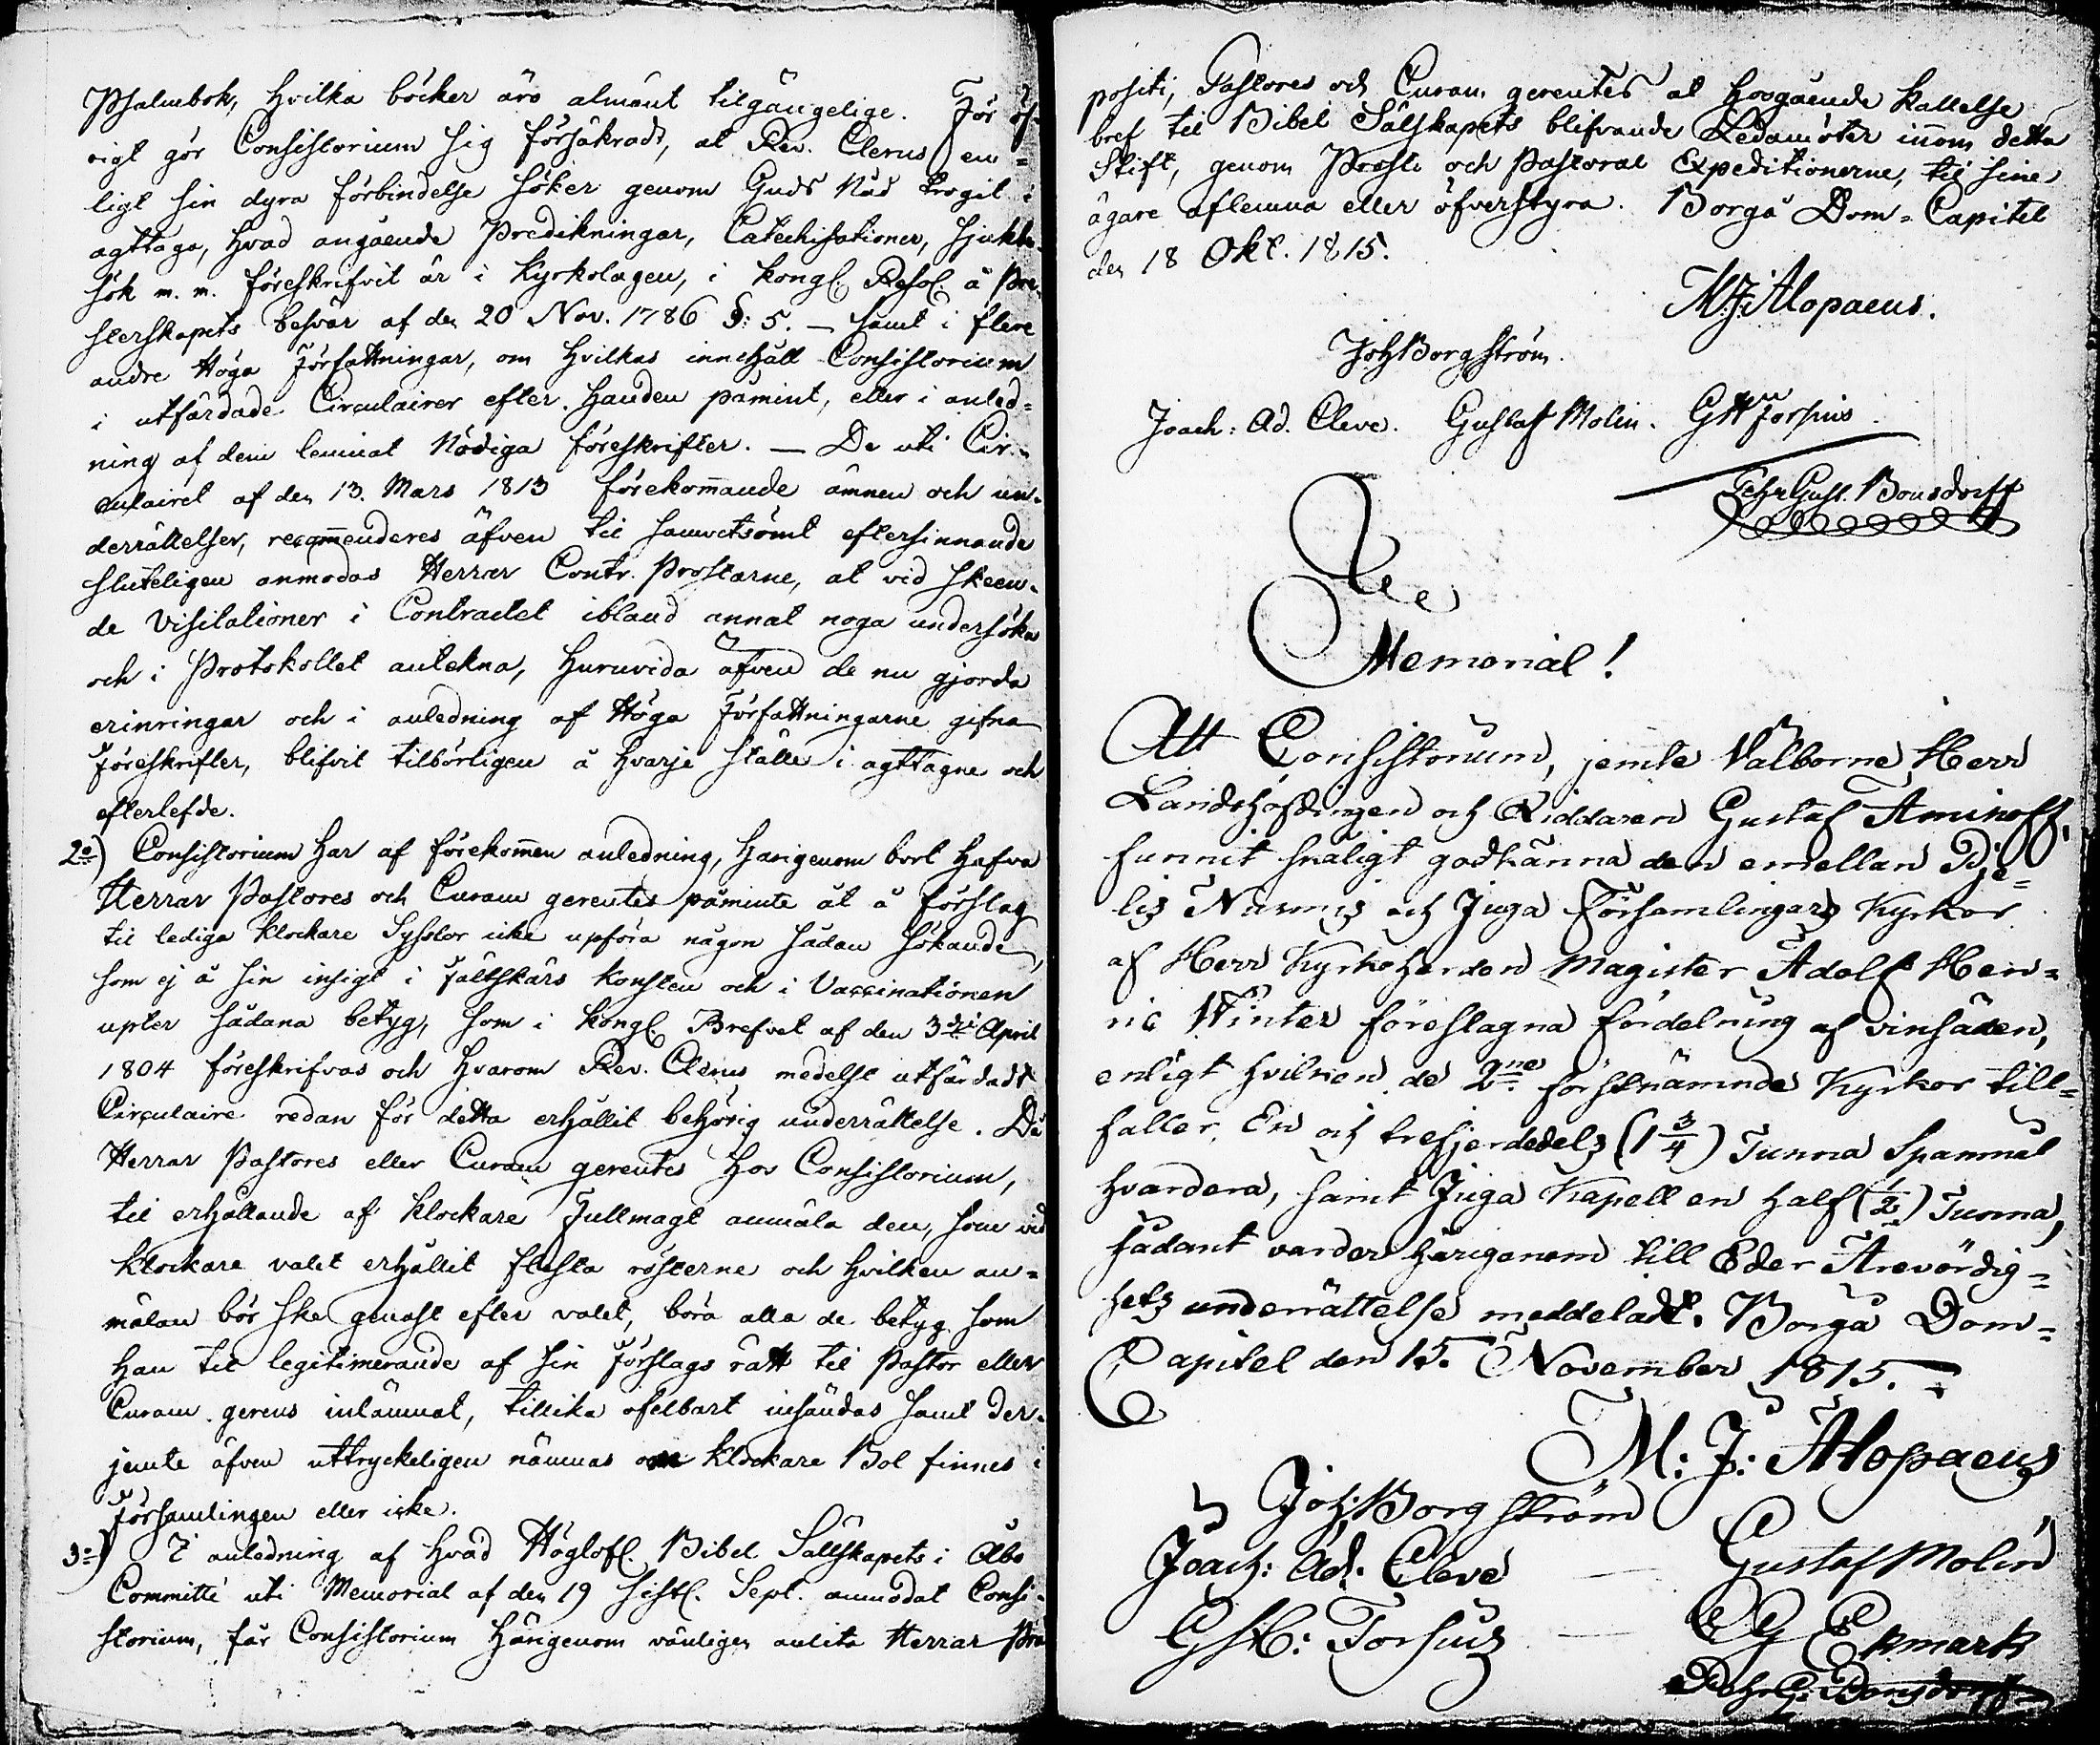 Psalmbok, hvilka böcker äro almänt tilgängelige. För öf-
rigt gör Consistorium sig försäkradt, at Rev. Clerus en=
ligt sin dyra förbindelse söker genom Guds Nåd trogit i
agttaga, hvad angående Predikningar, Catechisationer, sjukbe-
sök m. m. föreskrifvit är i Kyrkolagen, i Kongl. Resol. å Pre-
sterskapets besvär af den 20 Nov. 1786 §: 5. — samt i flere
andre Höga Författningar, om hvilkas innehåll Consistorium
i utfärdade Circulairer efter handen påmint, eller i anled=
ning af dem lemnat Nödiga föreskrifter. — De uti Cir-
culairet af den 13. Mars 1813 förekommande ämnen och un-
derrättelser, recommenderes äfven til samvetsömt eftersinnande
sluteligen anmodas Herrar Contr. Prostarne, at vid skeen-
de Visitationer i Contractet ibland annat noga undersöka
och i Protokollet antekna, huruvida äfven de nu gjorda
erinringar och i anledning af Höga Författningarne gifna
Föreskrifter, blifvit tilbörligen å hvarje ställe i agttagne och
efterlefde.
2:o) Consistorium har af förekommen anledning, härigenom bort hafva
Herrar Pastores och Curam gerentes påminte at å förslag
til lediga klockare Sysslor icke upföra någon sådan sökande,
som ej å sin insigt i Fältskärs konsten och i Vaccinationen
upter sådana betyg, som i Kongl. Brefvet af den 3die April
1804 föreskrifvas och hvarom Rev. Clerus medelst utfärdadt
Circulaire redan för detta erhållit behörig underrättelse. Då
Herrar Pastores eller Curam gerentes hos Consistorium,
til erhållande af Klockare Fullmagt anmäla den, som vid
Klockare valet erhållit flesta rösterne och hvilken an=
mälan bör ske genast efter valet, böra alla de betyg som
han til legitimerande af sin Förslags rätt til Pastor eller
Curam gerens inlämnat, tillika ofelbart insändas samt der-
jemte äfven uttryckeligen nämnas om Klockare Bol finnes i
Församlingen eller icke.
3:o) I anledning af hvad Höglofl. Bibel Sällskapets i Åbo
Committé uti Memorial af den 19 sistl. Sept. anmodat Consi-
storium, får Consistorium härigenom vänligen anlita Herrar Præ
positi, Pastores och Curam gerentes at hosgående kallelse
bref til Bibel Sälskapets blifvande Ledamöter inom detta
Stift, genom Prosti och Pastoral Expeditionerne, til sine
ägare aflemna eller öfverstyra. Borgå Dom=Capitel
den 18 Okt. 1815.
M. J. Alopaeus.
Joh Borgström.
Joach: Ad. Cleve. Gustaf Molin. G H Forsius.
Fehr Gust. Bonsdorff
Memorial!
Att Consistorium, jemte Välborne Herr
Landshöfdingen och Riddaren Gustaf Aminoff,
funnit skäligt godkänna den emellan Pje=
lis Nurmis och Juga Församlingars Kyrkor
af Herr Kyrkoherden Magister Adolf Hen=
ric Winter föreslagna fördelning af vinsäden,
enligt hvilken de 2ne förstnämnde Kyrkor till=
faller En och trefjerdedels (1 3/4) Tunna Spanmål
hvardera, samt Juga Kapell en half (1/2) Tunna,
sådant varder härigenom till Eder Ärevördig=
hets underrättelse meddeladt. Borgå Dom=
Capitel den 15. November 1815.
M: J: Alopaeus
Joh: Borgström
Joach: Ad. Cleve — Gustaf Molin
G H: Forsius — C G Ekmark
Fehr G: Bonsdorff